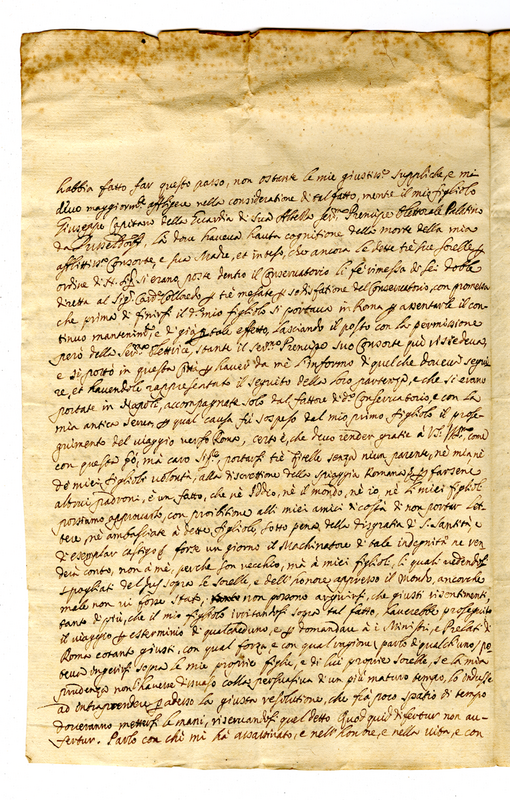 habbia fatto far questo passo, non ostante le mie giustiss.e suppliche, e mi
devo maggiorm.te affligere nella consideratione di tal fatto, mentre il mio figliolo
Giuseppe Capitano della Guardia di Sua Altezza Ser.ma Prencipe Elettorale Palatino
da Dusseldorf, là dove haveva hauta cognitione della morte della mia
afflittiss.a Consorte, e sua Madre, et inteso, che ancora le dette trè sue sorelle p
ordine di si erano poste dentro il Conservatorio li fè rimessa di sei doble
diretta al Sig.r Card. Colloredo p trè mesate p sodisfatione del Conservatorio, con promessa
che prima di finirsi il d.o mio figliolo si portava in Roma p assentarle il con-
tinuo mantenim.to, e di già p tale effetto lasciando il posto con la permissione
però della Ser.ma Elettrice, stante il Ser.mo Prencipe suo Consorte più risiedeva,
e si portò in questa Città p haver da me l'informo di quel che doveva segui-
re, et havendoli rappresentato il seguito della loro partenza, e che si erano
portate in Napoli, accompagnate solo dal fattore di d.o Conservatorio, e con la
mia antica serva, p qual causa fù sospeso dal mio primo figliolo il prose-
guimento del viaggio verso Roma, certo è, che devo render gratie à come
con questo mà caro portarsi trè Zitelle senza niun parente, nè mia nè
de miei figliolo volontà, alla discrettione della spiaggia Romana, p farsene
altrui padroni, è un fatto, che nè Iddio, nè il mondo, nè io, nè li miei figlioli
possiamo approvarlo, con proibitione alli miei amici di non portar let-
tere, nè ambasciate à dette figliole, sotto pena della disgratia di S. Santità e
di esemplar castigo, forse un giorno il Machinatore di tale indegnità ne ven-
derà conto, non à mè, perche son vecchio, mà à miei figlioli, li quali vedendosi
spogliati del jus sopra le sorelle, e dell'honore appresso il Mondo, ancorche
male non vi fosse stato, non possono arguirsi, che giusti risentimenti,
tanto di più, che il mio figliolo irritandosi sopra tal fatto, haverebbe proseguito
il viaggio p esterminio di qualcheduno, e p domandar à i Ministri, e Prelati di
Roma cotanto giusti, con qual forza, e con qual ragione (parlo di qualch'uno) po-
teva ingerirsi sopra le mie proprie figlie, e di lui proprie sorelle, se la mia
prudenza non l'haveva disuaso colla persuasiva di un più maturo tempo, lo indusse
ad intraprender p adesso la giusta resolutione, che frà poco spatio di tempo
doveranno mettersi le mani, riserandosi quel detto Quod quid differtur non au-
fertur. Parlo con chi mi hà assassinato, e nell'honore, e nella vita, e con